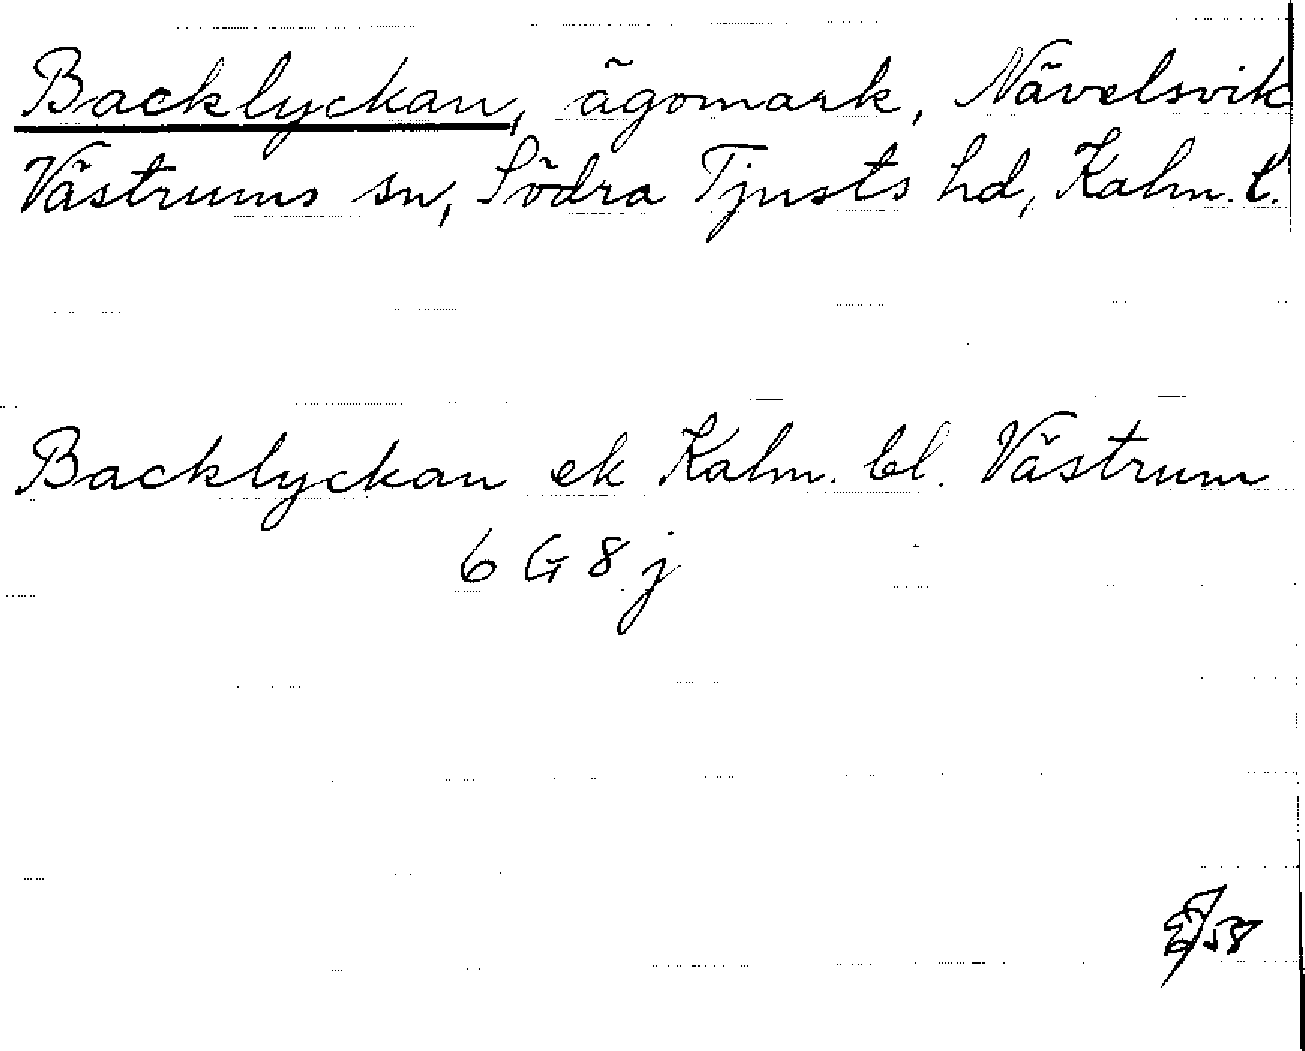 Backlyckan, ägomark, Nävelsvik
Västrums sn, Södra Tjusts hd, Kalm. l.
Backlyckan ek Kalm. bl. Västrum
6 G 8 j